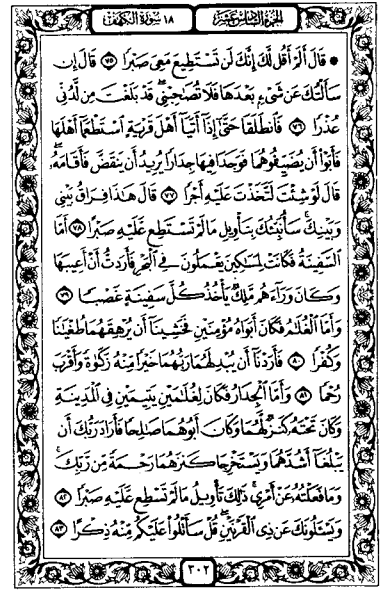 الجزء السادس عشر ١٨ سورة الكهف
• قَالَ أَلَمْ أَقُل لَّكَ إِنَّكَ لَن تَسْتَطِيعَ مَعِىَ صَبْرًا ٧٥ قَالَ إِن
سَأَلْتُكَ عَن شَىْءٍۭ بَعْدَهَا فَلَا تُصَٰحِبْنِى ۖ قَدْ بَلَغْتَ مِن لَّدُنِّى
عُذْرًا ٧٦ فَٱنطَلَقَا حَتَّىٰٓ إِذَآ أَتَيَآ أَهْلَ قَرْيَةٍ ٱسْتَطْعَمَآ أَهْلَهَا
فَأَبَوْا۟ أَن يُضَيِّفُوهُمَا فَوَجَدَا فِيهَا جِدَارًا يُرِيدُ أَن يَنقَضَّ فَأَقَامَهُۥ ۖ
قَالَ لَوْ شِئْتَ لَتَّخَذْتَ عَلَيْهِ أَجْرًا ٧٧ قَالَ هَٰذَا فِرَاقُ بَيْنِى
وَبَيْنِكَ ۚ سَأُنَبِّئُكَ بِتَأْوِيلِ مَا لَمْ تَسْتَطِع عَّلَيْهِ صَبْرًا ٧٨ أَمَّا
ٱلسَّفِينَةُ فَكَانَتْ لِمَسَٰكِينَ يَعْمَلُونَ فِى ٱلْبَحْرِ فَأَرَدتُّ أَنْ أَعِيبَهَا
وَكَانَ وَرَآءَهُم مَّلِكٌ يَأْخُذُ كُلَّ سَفِينَةٍ غَصْبًا ٧٩
وَأَمَّا ٱلْغُلَٰمُ فَكَانَ أَبَوَاهُ مُؤْمِنَيْنِ فَخَشِينَآ أَن يُرْهِقَهُمَا طُغْيَٰنًا
وَكُفْرًا ٨٠ فَأَرَدْنَآ أَن يُبْدِلَهُمَا رَبُّهُمَا خَيْرًا مِّنْهُ زَكَوٰةً وَأَقْرَبَ
رُحْمًا ٨١ وَأَمَّا ٱلْجِدَارُ فَكَانَ لِغُلَٰمَيْنِ يَتِيمَيْنِ فِى ٱلْمَدِينَةِ
وَكَانَ تَحْتَهُۥ كَنزٌ لَّهُمَا وَكَانَ أَبُوهُمَا صَٰلِحًا فَأَرَادَ رَبُّكَ أَن
يَبْلُغَآ أَشُدَّهُمَا وَيَسْتَخْرِجَا كَنزَهُمَا رَحْمَةً مِّن رَّبِّكَ ۚ
وَمَا فَعَلْتُهُۥ عَنْ أَمْرِى ۚ ذَٰلِكَ تَأْوِيلُ مَا لَمْ تَسْطِع عَّلَيْهِ صَبْرًا ٨٢
وَيَسْـَٔلُونَكَ عَن ذِى ٱلْقَرْنَيْنِ ۖ قُلْ سَأَتْلُوا۟ عَلَيْكُم مِّنْهُ ذِكْرًا ٨٣
٣٠٢